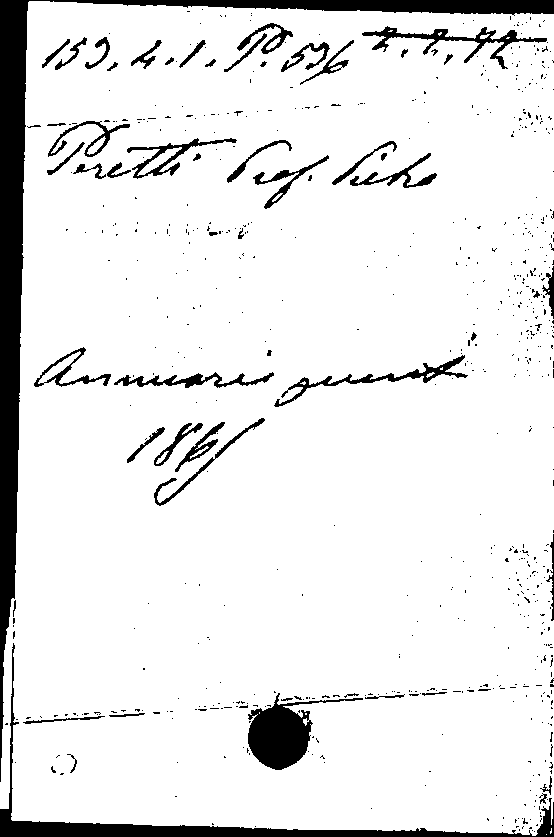 153.4.1.P.536 2.2.72
Peretti Prof. Pietro
Annuario
186